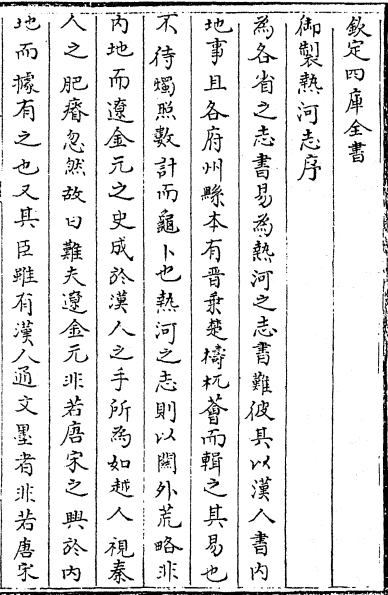 欽定四庫全書
御製熱河志序
為各省之志書易為熱河之志書難彼其以漢人書內
地事且各府州縣本有晋乗楚檮杌薈而輯之其易也
不待燭照數計而龜卜也熱河之志則以關外荒略非
內地而遼金元之史成於漢人之手所為如越人視秦
人之肥瘠忽然故曰難夫遼金元非若唐宋之興於內
地而據有之也又其臣雖有漢人通文墨者非若唐宋